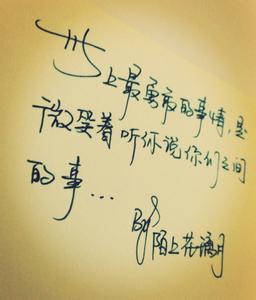 世上最勇敢的事情，是
微笑着听你说你们之间
的事...
By 陌上花漓月